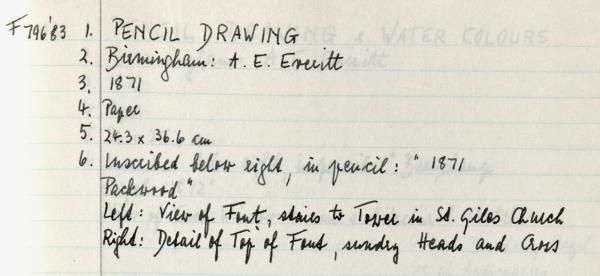 F796'83 1. PENCIL DRAWING
2. Birmingham: A. E. Everitt
3. 1871
4. Paper
5. 24.3 x 36.6 cm
6. Inscribed below right, in pencil: " 1871
Packwood "
Left: View of Font, stairs to Tower in St. Giles Church
Right: Detail of Top of Font, sundry Heads and Cross